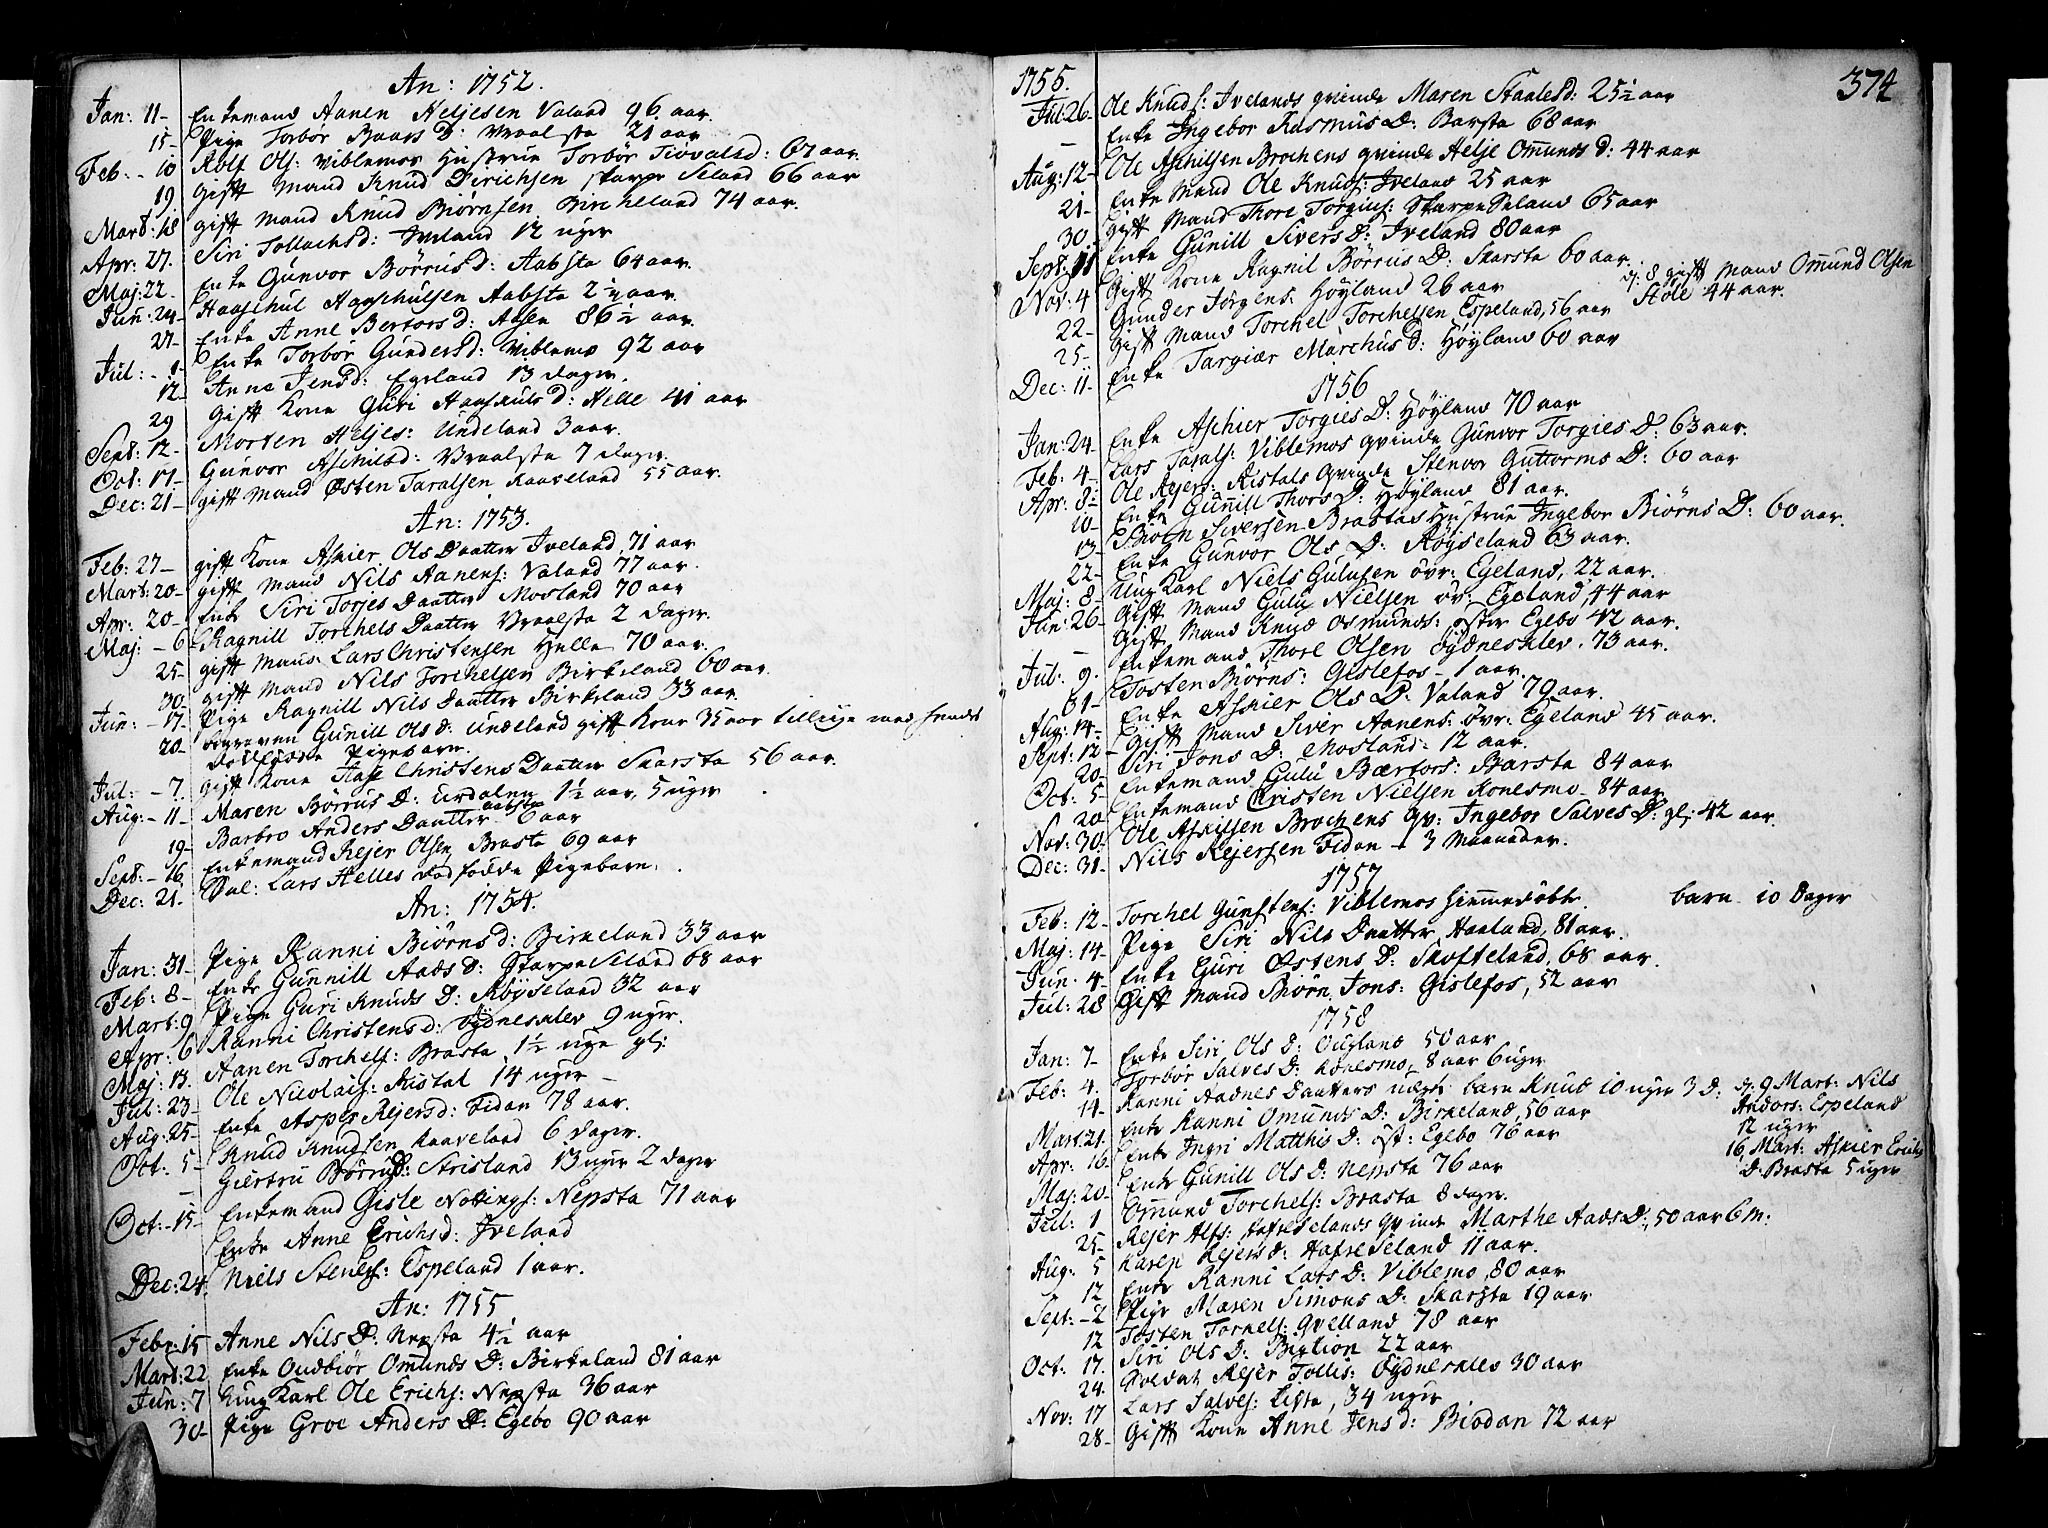 An: 1752.
Jan: 11- Enkemand Aanen Heljesen Valand 96 aar.
15- Pige Torbør Baars D: Vraalsta 21 aar
Feb: - 10 Rolf Ols: Viblemos Hustrue Torbør Tiøvalsd: 67 aar.
19 gift Mand Knud Dirichsen skarpe Seland 66 aar
Mart: 18 gift Mand Knud Biørnsen Birkeland 74 aar.
Apr: 27. Siri Tollachsd: Iveland 12 uger
Maj: 22- Enke Gunvor Børrus d: Aabsta 64 aar.
Jun: 24- Haaschul Haaschulsen Aabsta 2 1/2 aar.
27- Enke Anne Bertors d: Aasen 86 1/2 aar.
Jul: - 1- Enke Torbør Gunders d: Viblemo 92 aar
12- Anna Jens d: Egeland 13 dager.
29 gift Kone Guri Haaskuls d: Helle 41 aar
Sept: 12- Morten Heljes: Undeland 3 aar.
Oct: 17- Gunvor Aschilsd: Vraalsta 7 dager.
Dec: 21- gift Mand Østen Taralsen Kaaveland 55 aar.
An: 1753.
Feb: 27- gift Kone Askier Ols Daatter Iveland 71 aar
Mart: 20- gift Mand Nils Aanens: Valand 77 aar.
Apr: 20- Enke Siri Torjes Daatter Mosland 70 aar
Maj: - 6- Ragnill Torchels Daatter Vraalsta 2 dager.
25- gift Mand: Lars Christensen Helle 70 aar.
30- gift Mand Nils Torchelsen Birkeland 60 aar.
Jun: - 17. Pige Ragnill Nils Daatter Birkeland 33 aar.
20- begraven Gunill Ols d: Undeland gift Kone 35 aar tillige med hendes
dødfødde Pigebarn.
Jul: - 7. gift Kone Christens Daatter Skarsta 56 aar.
Aug: - 11- Maren Børrus D: Urdalen 1 1/2 aar, 5 uger
19- Barbro Anders Daatter Aabsta 6 aar
Sept: - 16 Enkemand Rejer Olsen Brasta 69 aar
Dec: 21- Lars Helles dødfødde Pigebarn.
An: 1754.
Jan: 31- Pige Ranni Biørns d: Birkeland 33 aar
Feb: 8- Enke Gunnill Aads d: Skarpe Seland 68 aar
Mart: 9 Pige Guri Knuds D: Røyseland 32 aar
Apr: 6 Ranni Christens d: Øydneskley 9 uger.
Maj: 13. Aanen Torchels: Brasta, 1 1/2 uge gl:
Jul: 23- Ole Nicolais: Ristal 14 uger -
Aug: 25- Enke Asper Rejers d: Fidan 78 aar.
Oct: 5- Knud Knudsen Kaaveland 6 Dager.
- Giertru Børrus D: Strisland 13 uger 2 dager
Oct: - 15- Enkemand Gisle Nottings: Nepsta 71 aar
Enke Anne Erichs d: Iveland
Dec: 24. Niels Stenes: Espeland 1 aar.
An: 1755
Febr: 15 Anne Nils D: Nepsta 4 1/2 aar
Mart: 22 Enke Oudbiør Omunds D: Birkeland 81 aar
Jun: 7 Ung Karl Ole Erichs: Nepsta 36 aar
30- Pige Groe Anders D: Egebo 90 aar
1755.
374
Jul: 26- Ole Knuds: Ivelands qvinde Maren Staalesd: 25 1/2 aar
- Enke Ingebor Rasmus D: Barsta 68 aar
Aug: 12- Ole Aschilsen Brochens qvinde Helje Omunds d: 44 aar
21- Enke Mand Ole Knuds: Iveland 25 aar
30 gift Mand Thore Torgius: Skarpe Seland 65 aar
Sept: 11 Enke Gunill Sivers D: Iveland 80 aar
Nov: 4 Gift Kone Ragnil Børrus D: Skarsta 60 aar. d: 8 gift Mand Omund Olsen
Støle 44 aar.
22- Gunder Jørgens: Høyland 26 aar
25- gift Mand Torchel Torchelsen Espeland, 56 aar
Dec: 11- Enke Targiær Marchus d: Høyland 60 aar
1756
Jan: 24- Enke Aschier Torgies D: Høyland 70 aar
Feb: 4- Lars Tarals: Viblemos qvinde Gunvor Torgies D: 63 aar.
Apr: 8- Ole Rejers: Ristals qvinde Stenvor Guttorms D: 60 aar
10- Enke Gunill Thors D: Høyland 81 aar.
13- Siversen Brastas Hustrue Ingebor Biørns D: 60 aar.
22- Enke Gunvor Ols D: Røyseland 63 aar.
Maj: 8- Ung Karl Niels Gulusen øvr: Egeland, 22 aar.
Jun: 26- Gift Mand Gulu Nielsen øv: Egeland, 44 aar
Gift Mand Knud Osmunds: øster Egebo 42 aar.
Jul: 9. Enkemand Thore Olsen Øydneskley. 73 aar.
31- Tosten Biørns: Gislefos - 1 aar.
Aug: 14- Enke Askier Ols D: Valand 79 aar.
Sept: 12- Gift Mand Siver Aanens: øvr: Egeland 45 aar.
20- Siri Jons D: Mosland - 12 aar.
Oct: 5- Enkemand Gulu Bærtors: Barsta 84 aar
20 Enkemand Christen Nielsen Konesmo - 84 aar
Nov: 30. Ole Askilsen Brochens qv: Ingebor Salves D: gl: 42 aar.
Dec: 31- Nils Rejersen Fidan - 3 Maaneder.
1757
Feb: 12- Torchel Gunstens: Viblemos hiemmedøbte barn 10 Dager
Maj: 14- Pige Siri Nils Daatter Haaland, 81 aar.
Jun: 4- Enke Guri Østens D: Skofteland, 68 aar.
Jul: 28 Gift Mand Biørn Jons: Gislefos, 52 aar
1758
Jan: 7- Enke Siri Ols D: Ougland 50 aar
Feb: 4. Torbør Salves D: Konesmo, 8 aar 6 uger
14- Ranni Aadnes Daatters uægte barn Knud 10 uger 3 D: d: 9 Mart: Nils
Andors: Espeland
12 uger
16, Mart: Askier Erichs
D: Brasta 5 uger
Mart: 21- Enke Ranni Omunds D: Birkeland, 56 aar
Apr: 16- Enke Ingri Matthis D: øst: Egebo 76 aar
Maj: 20- Enke Gunill Ols D: Nepsta 76 aar
Jul: 1 Omund Torchels: Brasta 8 dager.
25- Rejer Alfs: Hafreselands qvinde Marthe Aads D:, 50 aar 6 m:
Aug: 5 Karen Rejers D: Hafre Seland 11 aar.
12 Enke Ranni Lars D: Viblemo, 80 aar
Sept: - 2 Pige Maren Simons D: Skarsta 19 aar
12 Tosten Tornels: Qvelland 78 aar
Oct: 17. Siri Ols D: Bigtion 22 aar
24. Soldat Rejer Tollis: Øydneskley 30 aar
Nov: 17 Lars Salves: Lista, 34 uger
28- Gift Kone Anne Jens d: Biodan 72 aar